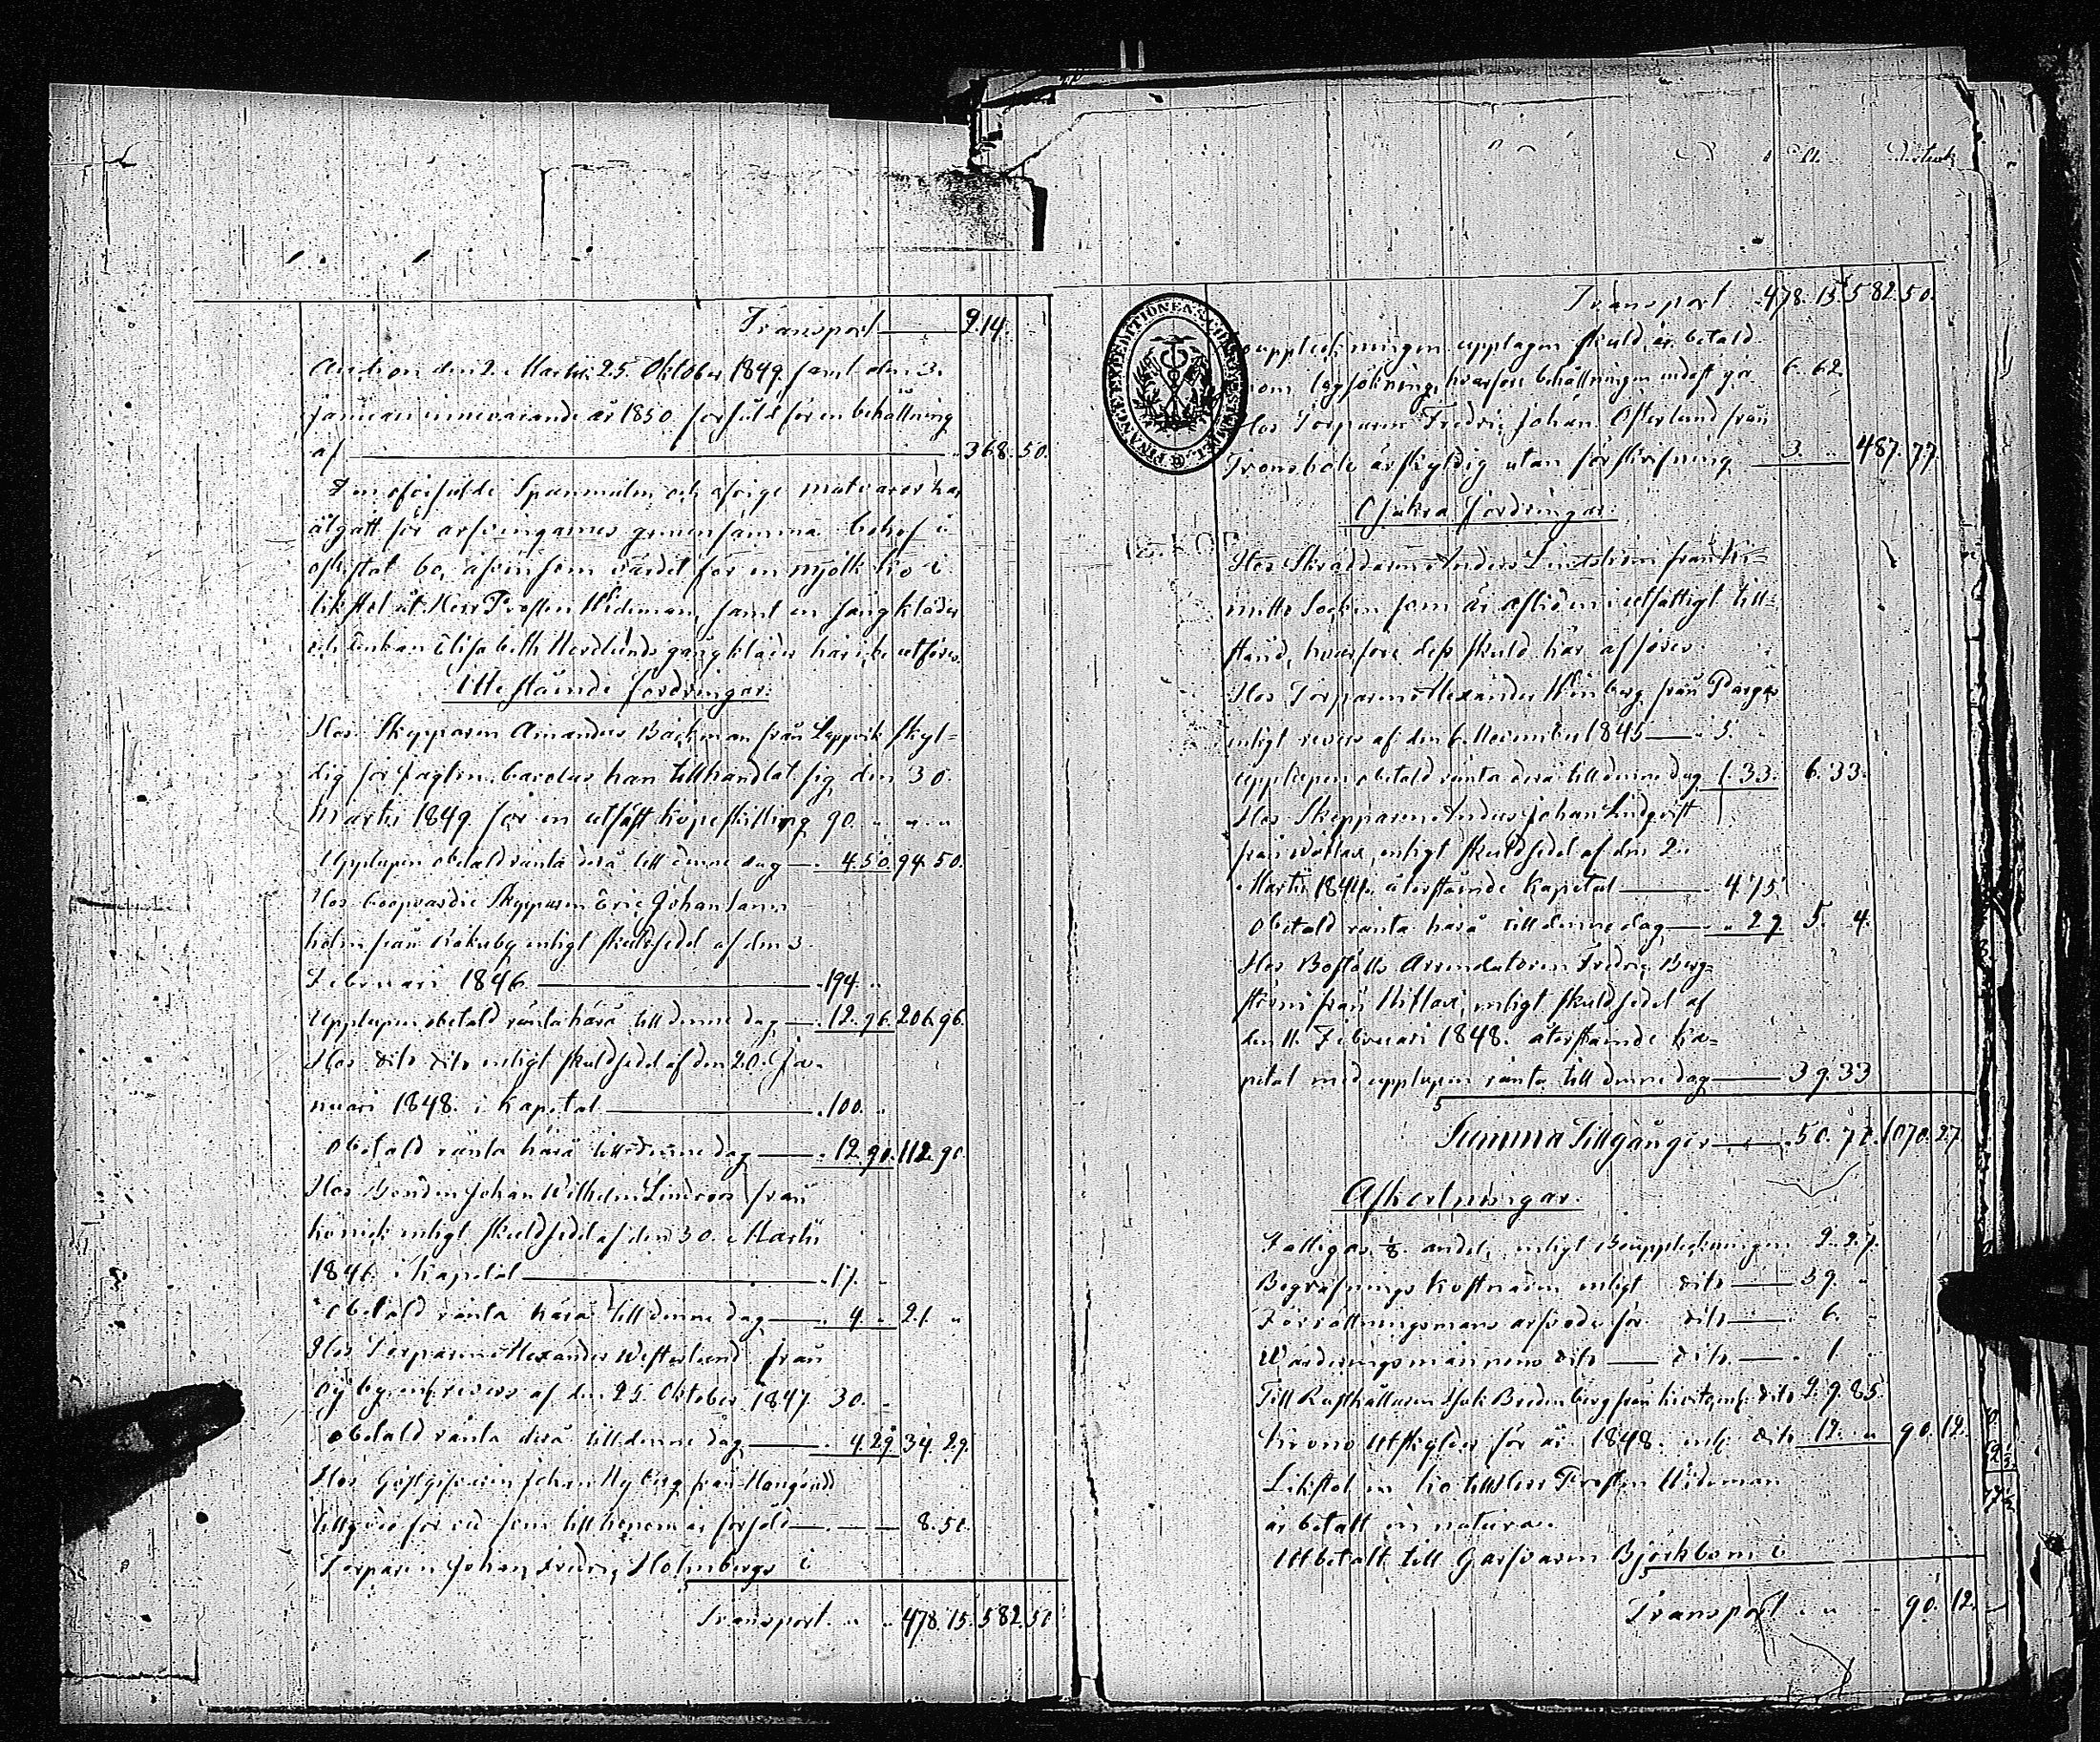 Transport 214.
Auction den 2. Martii, 25. Oktober 1849. samt den 3.
Januari innevarande år 1850. försåld för en behållning
af 368. 50.
Den oförsålde Spanmålen och öfrige matvaror ha,
åtgått för arfvingarnes gemensamma behof i
oskiftat bo, äfvensom värdet för en mjölk ko i
likstol åt Herr Prosten Wideman, samt en säng kläder
och Enkan Elisabeth Nordlunds gångkläder här icke utföres.
Utestående fordringar:
Hos Skepparen Amandus Backman från Lappvik skyl=
dig för jagten han tillhandlat sig den 30.
Martii 1849 för en utfäst köpeskilling 90. " " "
Upplupen obetald ränta derå till denne dag 4. 50. 94. 50.
Hos Coopvardie Skepparen Eric Johan Sann
holm från enligt skuldsedel af den 3.
Februari 1846 194. "
Upplupen obetald ränta härå till denne dag 12. 96. 206. 96.
Hos dito dito enligt skuldsedel af den 20. Ja=
nuari 1848. i Kapital 100. "
Obetald ränta härå till denne dag 12. 90. 112. 90.
Hos Bonden Johan Wilhelm Limroos från
enligt skuldsedel af den 30. Martii
1846 i Kapital 17. "
obetald ränta härå till denne dag 4. " 21. "
Hos Torparen Alexander Westerlund från
Öby enl. revers af den 25. Oktober 1847. 30. "
obetald ränta derå till denne dag 4. 29. 34. 29.
Hos Gästgifvaren Johan Nyberg från
tillgodo för ved som till honom är försåld 8. 50.
Torparen Johan Fredric Holmbergs i
Transport " " 478. 15. 582. 50.
FINANCE EXPEDITIONENS
Transport 478. 15. 582. 50.
bouppteckningen upptagen skuld, är betald
genom lagsökning, hvarföre behållningen endast gör 6. 62.
Hos Torparen Fredric Johan Österlund från
Tronsböle är skyldig utan förskrifning 3. " 487. 77.
Osäkra fordringar:
Hos Skräddaren Anders Lindström från Ki=
mitto Socken som är afliden i utfattigt till=
stånd, hvarföre dess skuld här afföres.
Hos Torparen Alexander Winberg från Pargas
enligt revers af den 6. November 1845 5. "
upplupen obetald ränta derå till denne dag 1. 33. 6. 33.
Hos Skepparen Anders Johan Lindqvist
från enligt skuldsedel af den 2.
Martii 1844. återstående Kapital 4. 75.
Obetald ränta härå till denne dag " 29. 5. 4.
Hos Boställs Arrendatoren Fredric Berg=
ström från Hitlax, enligt skuldsedel af
den 11. Februari 1848. återstående Ka=
pital med upplupen ränta till denne dag 39. 33.
Summa Tillgångar 50. 70. 1070. 27.
Afkortningar.
Fattigas 1/8. andel, enligt Bouppteckningen 2. 27.
Begrafnings kostnaden enligt dito 39. "
Förrättningsmans arfvode för dito 6. "
Wärderingsmännens dito dito 1 "
Till Rusthållaren Isak Bredenberg från enl. dito 29. 85.
Krono Utskylder för år 1848. enl. dito 12. " 90. 12.
Likstol en ko till Herr Prosten Wideman
är betalt in natura.
Utbetalt till Garfvaren Björkbom i
Transport " " 90. 12.